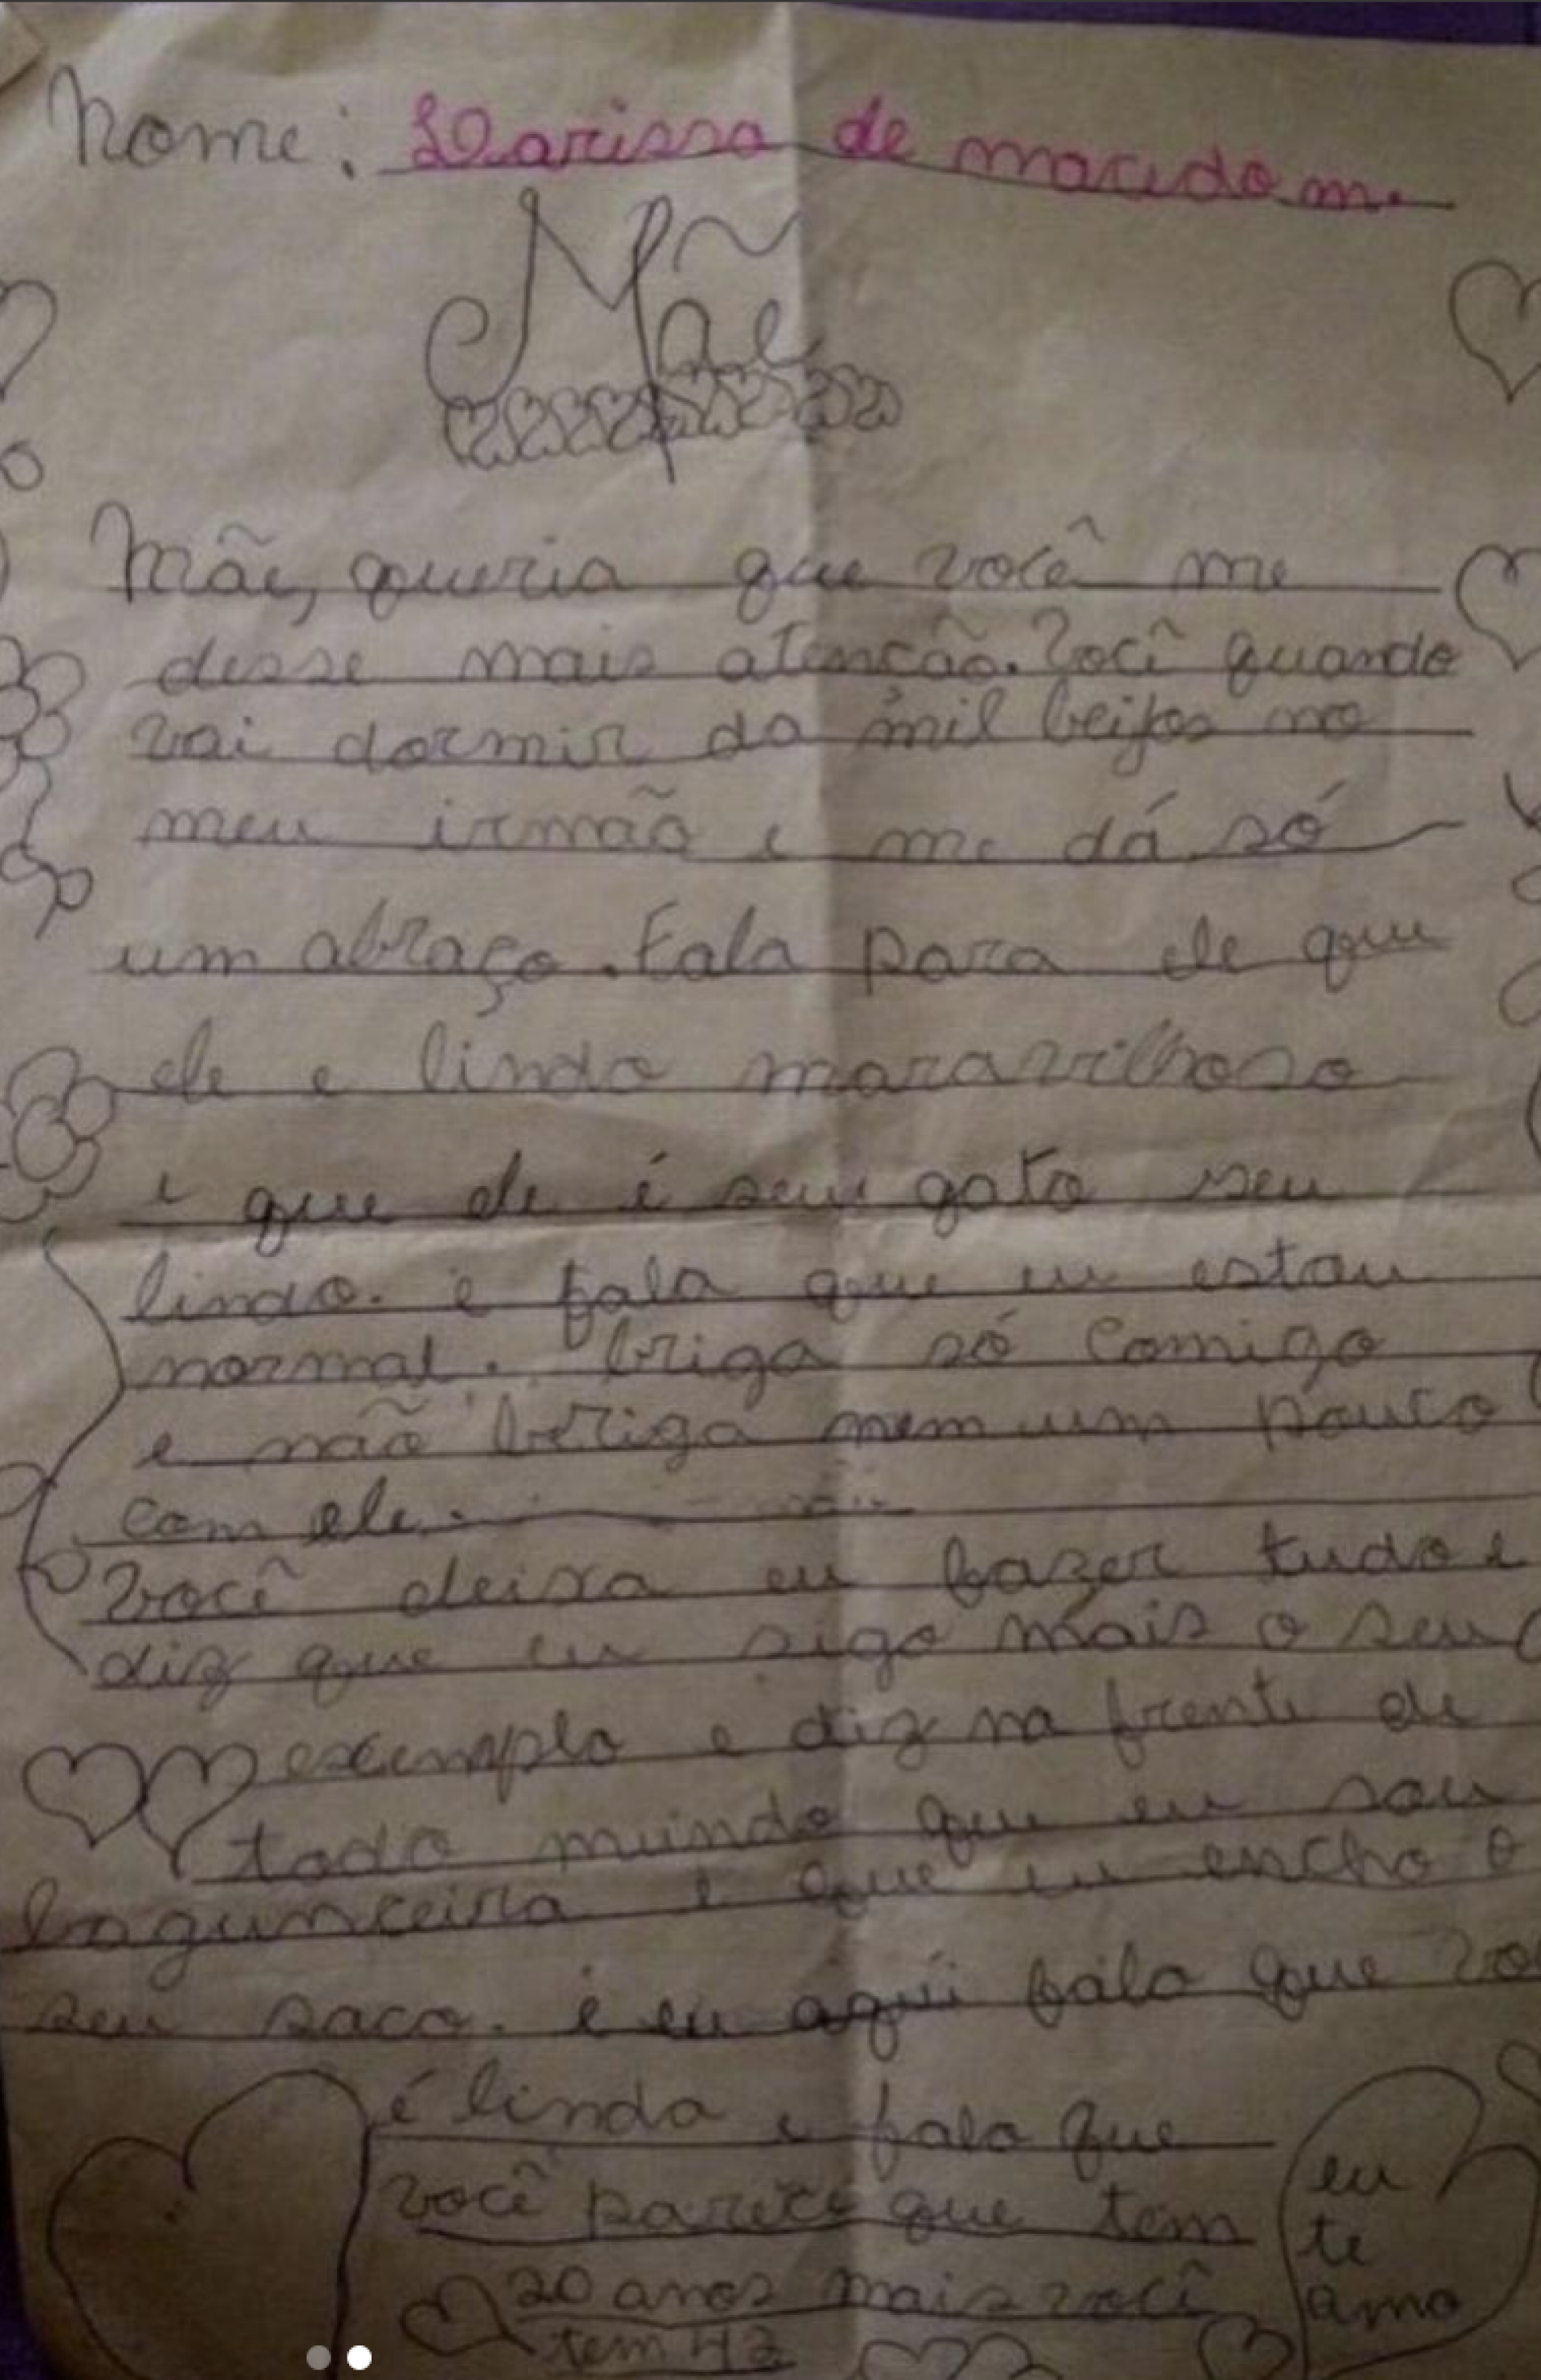 Nome: Larissa de macedo m.
Mãe
Mãe, queria que você me
desse mais atencão. Você quando
vai dormir da mil beijos no
meu irmão e me dá só
um abraço. Fala para ele que
ele e lindo maravilhoso
e que ele é seu gato seu
lindo. e fala que eu estou
normal. briga só comigo
e não briga nem um pouco
com ele.
Você deixa eu fazer tudo e
diz que eu sigo mais o seu
exemplo e diz na frente de
todo mundo que eu sou
bagunceira e que eu encho o
seu saco. e eu aqui falo que vo
é linda e falo que
você parece que tem
20 anos mais você
tem 42
eu
te
amo